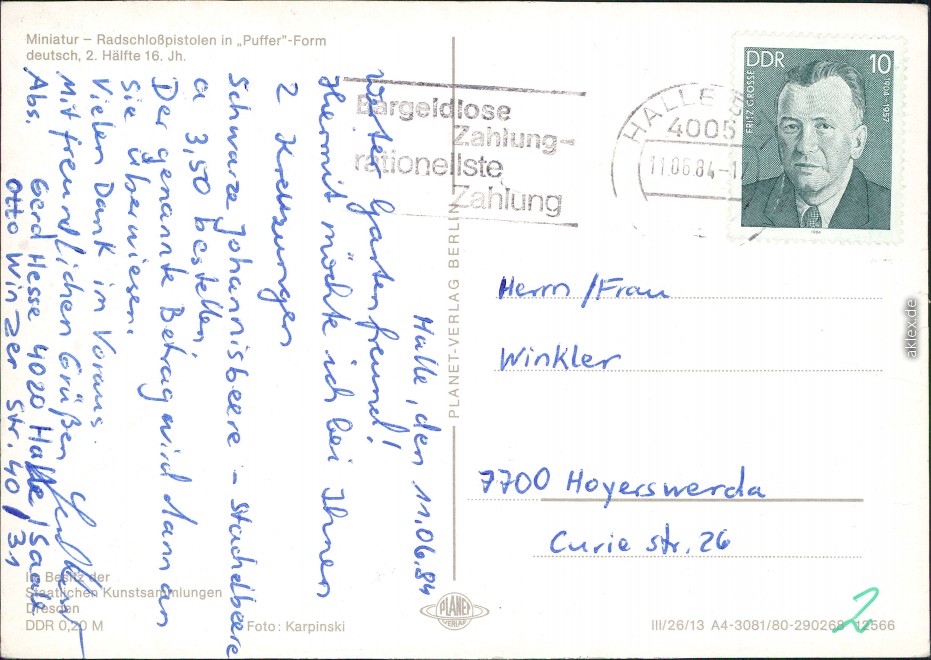 Miniatur – Radschloßpistolen in „Puffer"-Form
deutsch, 2. Hälfte 16. Jh.
Halle, den 11.06.84
Werter Gartenfreund!
Hiermit möchte ich bei Ihnen
2 Kreuzungen
Schwarze Johannisbeere – Stachelbeere
a 3,50 bestellen.
Der genannte Betrag wird dann an
Sie überwiesen.
Vielen Dank im Voraus.
Mit freundlichen Grüßen
Abs. Gerd Hesse 4020 Halle/Saale
Otto Winzer Str. 40/31
Bargeldlose
Zahlung-
rationellste
Zahlung
HALLE
4005
11.06.84-17
DDR 10
FRITZ GROSSE
1904-1957
1984
Herrn/Frau
Winkler
7700 Hoyerswerda
Curie str. 26
PLANET-VERLAG BERLIN
Im Besitz der
Staatlichen Kunstsammlungen
Dresden
DDR 0,20 M
Foto: Karpinski
PLANET
VERLAG
III/26/13 A4-3081/80-290268 12566
2
aklex.de